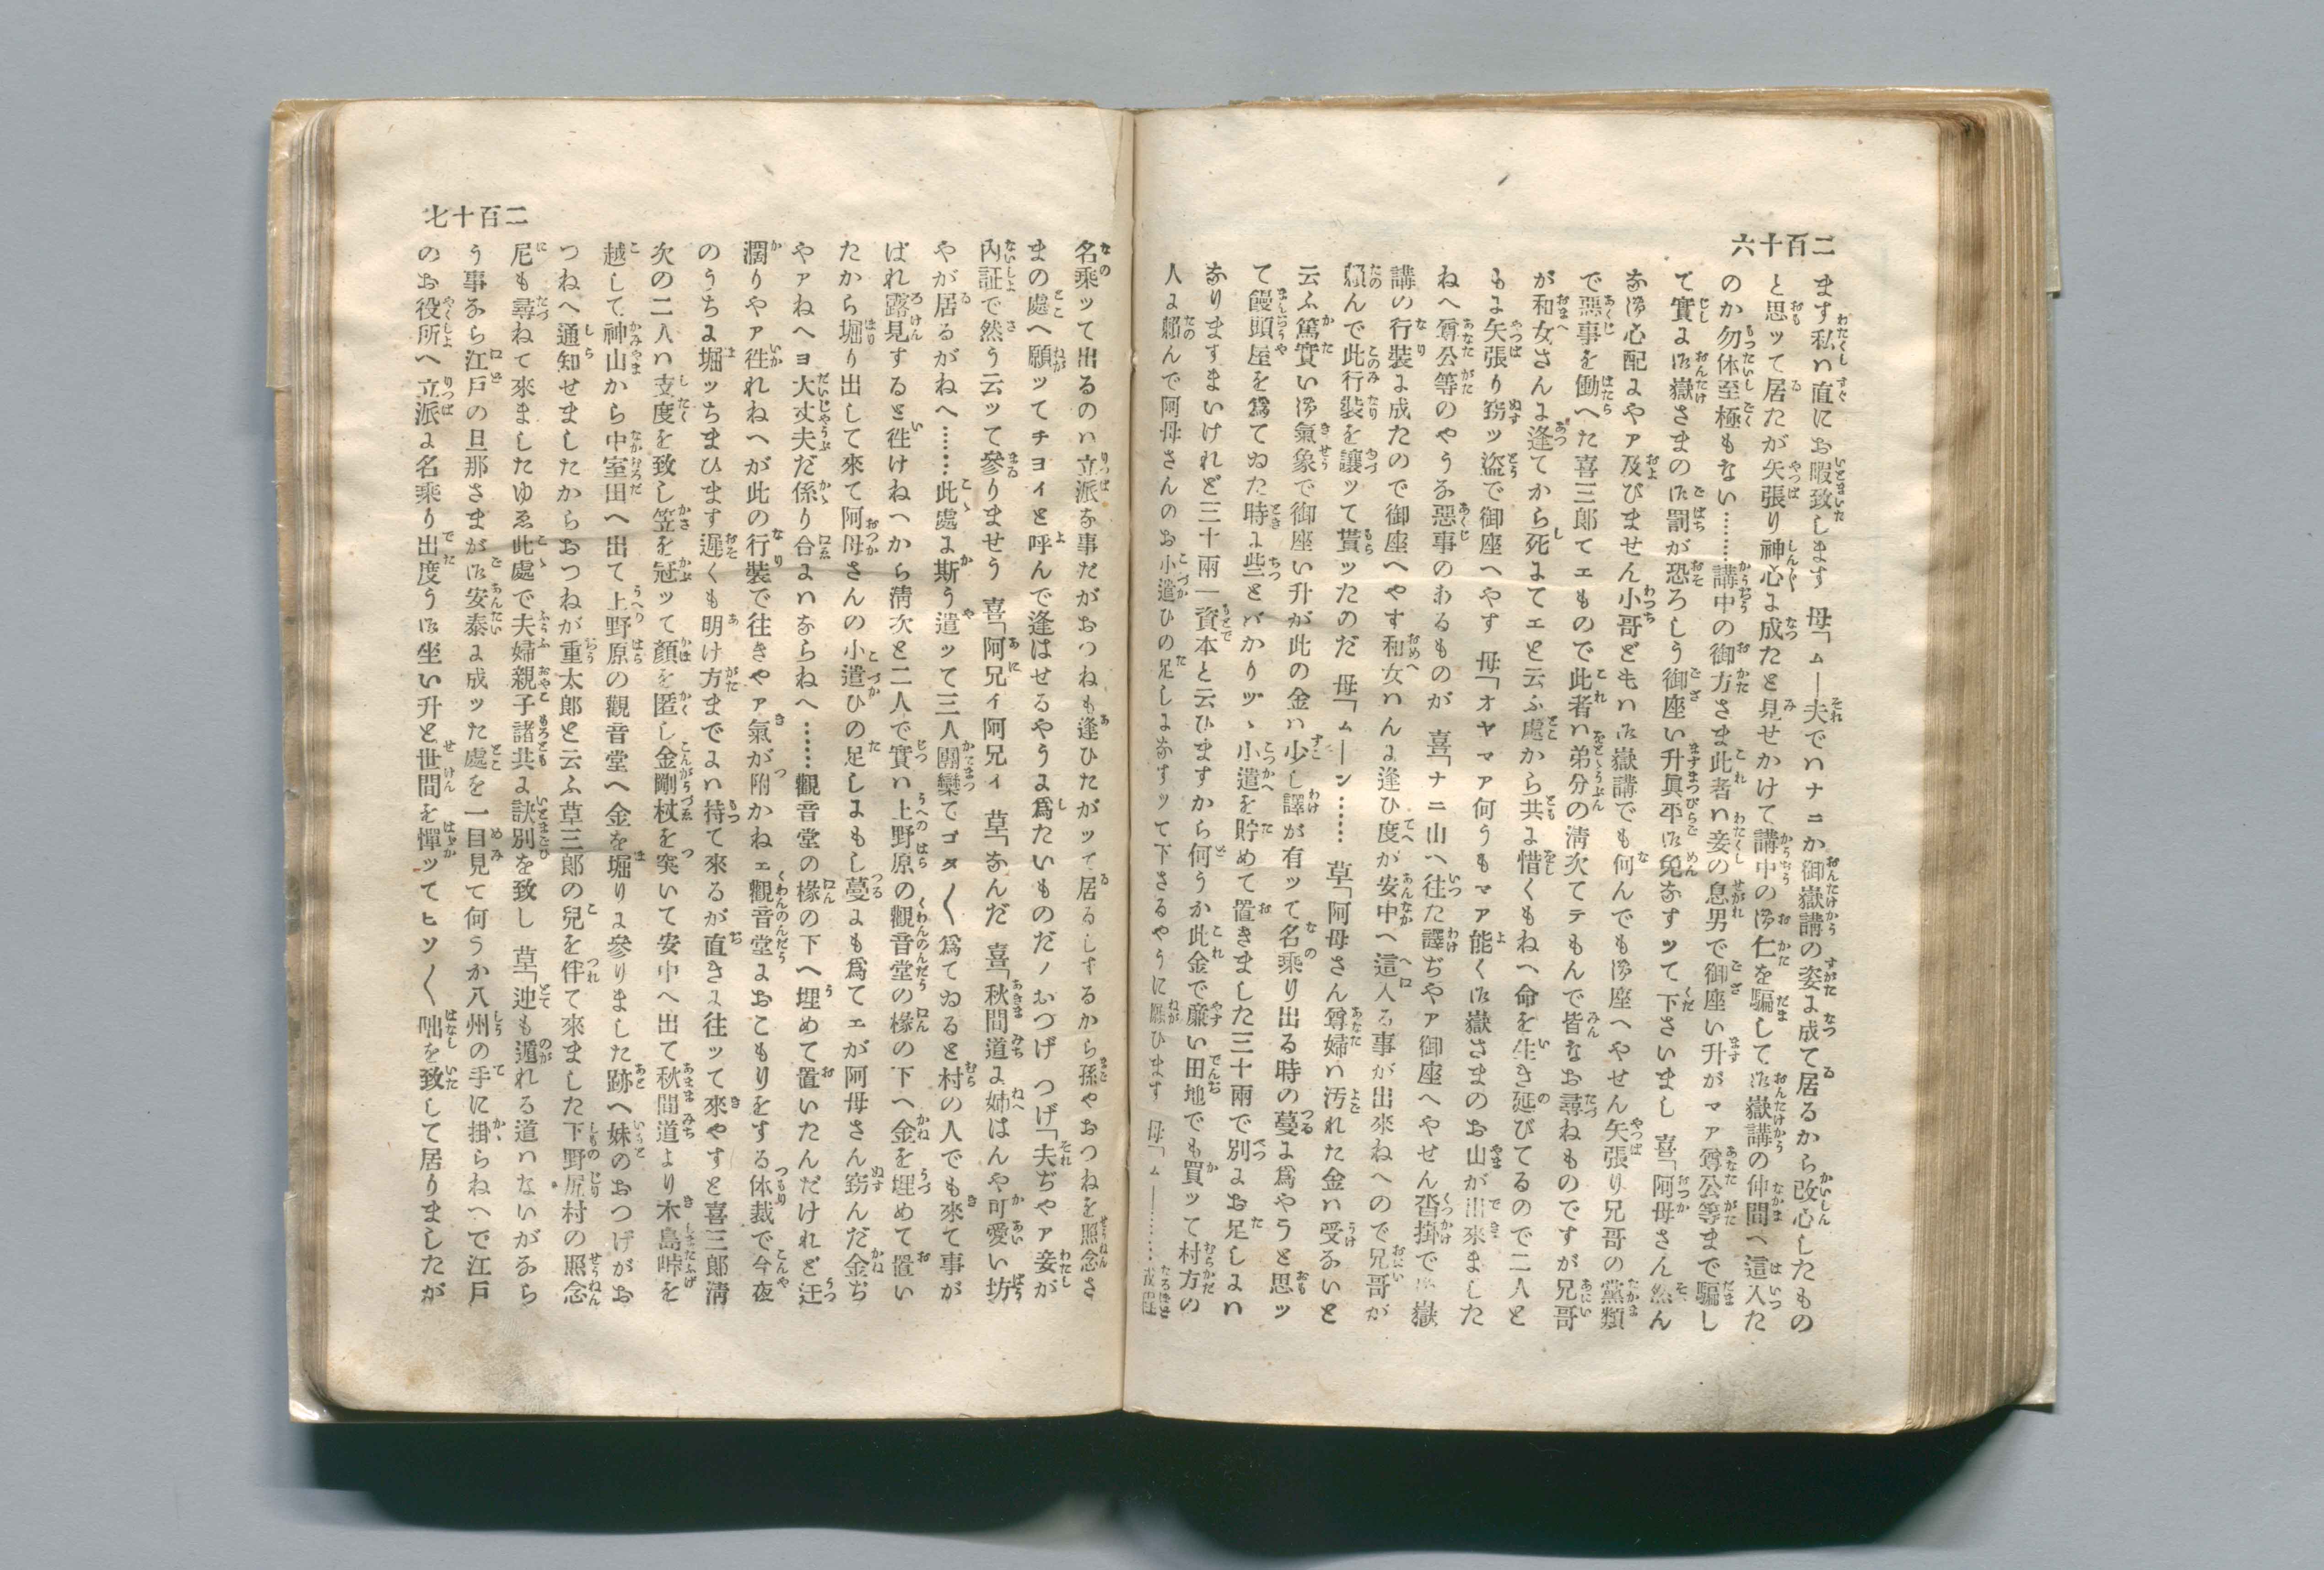 二百十六
ます私ハ直にお暇致します　母「ムー夫でハナニか御嶽講の姿よ成て居るから改心したもの
と思ッて居たが矢張り神心よ成たと見せかけて講中のお仁を騙して御嶽講の仲間へ這入た
のか勿体至極もない………講中の御方さま此者ハ妾の息男で御座い升がマア尊公等まで騙し
て實よ御嶽さまの御罰が恐ろしう御座い升眞平御免なすッて下さいまし　喜「阿母さん然ん
な御心配よやア及びません小哥どもハ御嶽講でも何んでも御座へやせん矢張り兄哥の黨類
で悪事を働へた喜三郎てエもので此者ハ弟分の清次てテもんで皆なお尋ねものですが兄哥
が和女さんよ逢てから死よてエと云ふ處から共よ惜くもねへ命を生き延びてるので二人と
もよ矢張り窃ッ盗で御座へやす　母「オヤマア何うもマア能く御嶽さまのお山が出來ました
ねへ尊公等のやうな惡事のあるものが　喜「ナニ山へ往た譯ぢやア御座へやせん沓掛で御嶽
講の行裝よ成たので御座へやす和女ハんよ逢ひ度が安中へ這入る事が出來ねへので兄哥が
頼んで此行裝を讓ッて貰ッたのだ　母「ムーン……　草「阿母さん尊婦ハ汚れた金ハ受ないと
云ふ篤實い御氣象で御座い升が此の金ハ少し譯が有ッて名乘り出る時の蔓よ爲やうと思ッ
て饅頭屋を爲てゐた時よ些とバかりヅヽ小遣を貯めて置きました三十兩で別よお足しよハ
なりますまいけれど三十兩一資本と云ひますから何うか此金で廉い田地でも買ッて村方の
人よ頼んで阿母さんのお小遣ひの足しよなすッて下さるやうに願ひます　母「ムー………成程
二百十七
名乘ッて出るのハ立派な事だがおつねも逢ひたがッて居るしするから孫やおつねを照念さ
まの處へ願ッてチヨイと呼んで逢はせるやうよ爲たいものだノおつげ　つげ「夫ぢやア妾が
內証で然う云ッて參りませう　喜「阿兄イ阿兄ィ　草「なんだ　喜「秋間道よ姉はんや可愛い坊
やが居るがねへ………此處よ斯う遣ッて三人團欒でゴタ〱爲てゐると村の人でも來て事が
ばれ露見すると徃けねへから淸次と二人で實ハ上野原の觀音堂の椽の下へ金を埋めて置い
たから堀り出して來て阿母さんの小遣ひの足しよもし蔓よも爲てエが阿母さん窃んだ金ぢ
やアねへヨ大丈夫だ係り合よハならねへ……觀音堂の椽の下へ埋めて置いたんだけれど迂
濶りやア徃れねへが此の行裝で往きやア氣が附かねェ觀音堂よおこもりをする体裁で今夜
のうちよ堀ッちまひます遲くも明け方までよハ持て來るが直きよ往ッて來やすと喜三郞淸
次の二人ハ支度を致し笠を冠ッて顏を匿し金剛杖を突いて安中へ出て秋間道より木島峠を
越して神山から中室田へ出て上野原の觀音堂へ金を堀りよ參りました跡へ妹のおつげがお
つねへ通知せましたからおつねが重太郎と云ふ草三郎の兒を伴て來ました下野尻村の照念
尼も尋ねて來ましたゆゑ此處で夫婦親子諸共よ訣別を致し　草「迚も遁れる道ハないがなら
う事なら江戸の旦那さまが御安泰よ成ッた處を一目見て何うか八州の手に掛らねへで江戸
のお役所へ立派よ名乘り出度う御坐い升と世間を憚ッてヒソ〱咄を致して居りましたが